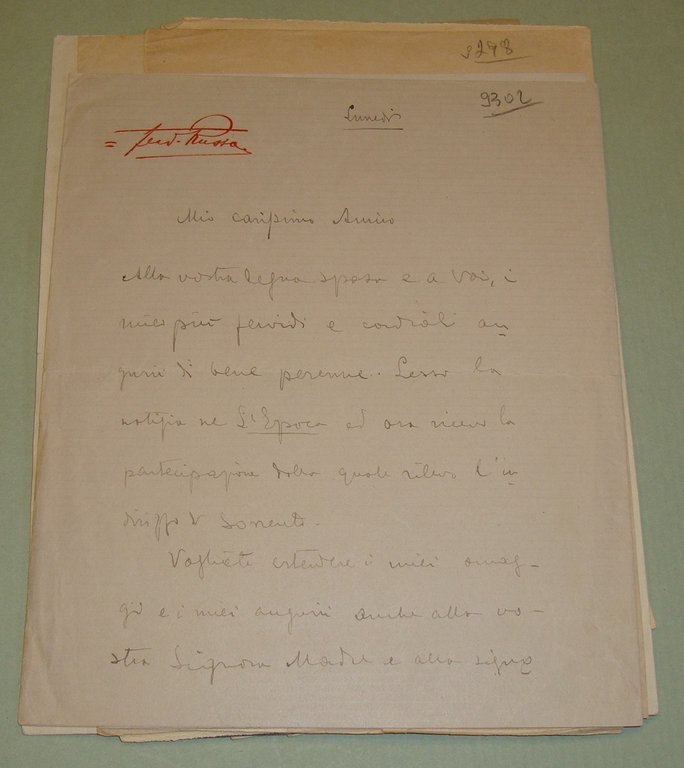 9278
9302
Lunedì
= Ferd. Russo.
Mio carissimo Amico
Alla vostra degna sposa e a Voi, i
miei più fervidi e cordiali au
gurii di bene perenne. Lessi la
notizia ne L'Epoca ed ora ricevo la
partecipazione dalla quale rilevo l'in
dirizzo di Sorrento.
Vogliate estendere i miei omag-
gi e i miei augurii anche alla vo-
stra Signora Madre e alla